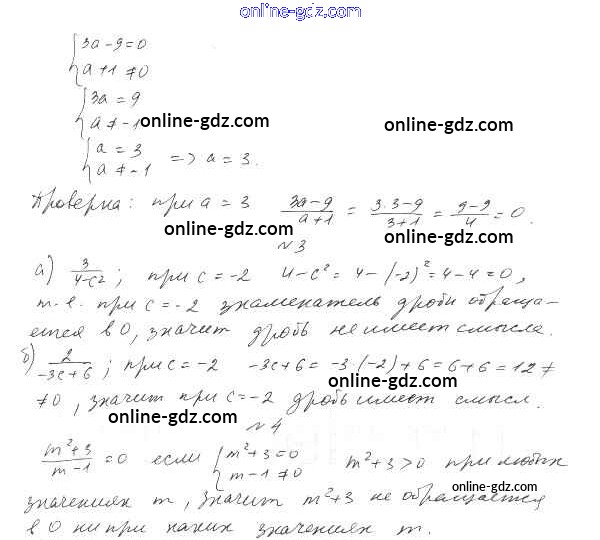 online-gdz.com
{ 3a-9=0
a+1≠0
{ 3a=9
a≠-1
online-gdz.com
online-gdz.com
{ a=3
a≠-1 => a=3.
Проверка: при a=3 (3a-9)/(a+1) = (3·3-9)/(3+1) = (9-9)/4 = 0.
online-gdz.com
online-gdz.com
№3
а) 3/(4-c²); при c=-2 4-c²=4-(-2)²=4-4=0,
т.е. при c=-2 знаменатель дроби обраща-
ется в 0, значит дробь не имеет смысла.
online-gdz.com
б) 2/(-3c+6); при c=-2 -3c+6=-3·(-2)+6=6+6=12≠
online-gdz.com
≠0, значит при c=-2 дробь имеет смысл.
online-gdz.com
№4
(m²+3)/(m-1)=0 если { m²+3=0
m-1≠0 m²+3>0 при любых
значениях m, значит m²+3 не обращается
в 0 ни при каких значениях m.